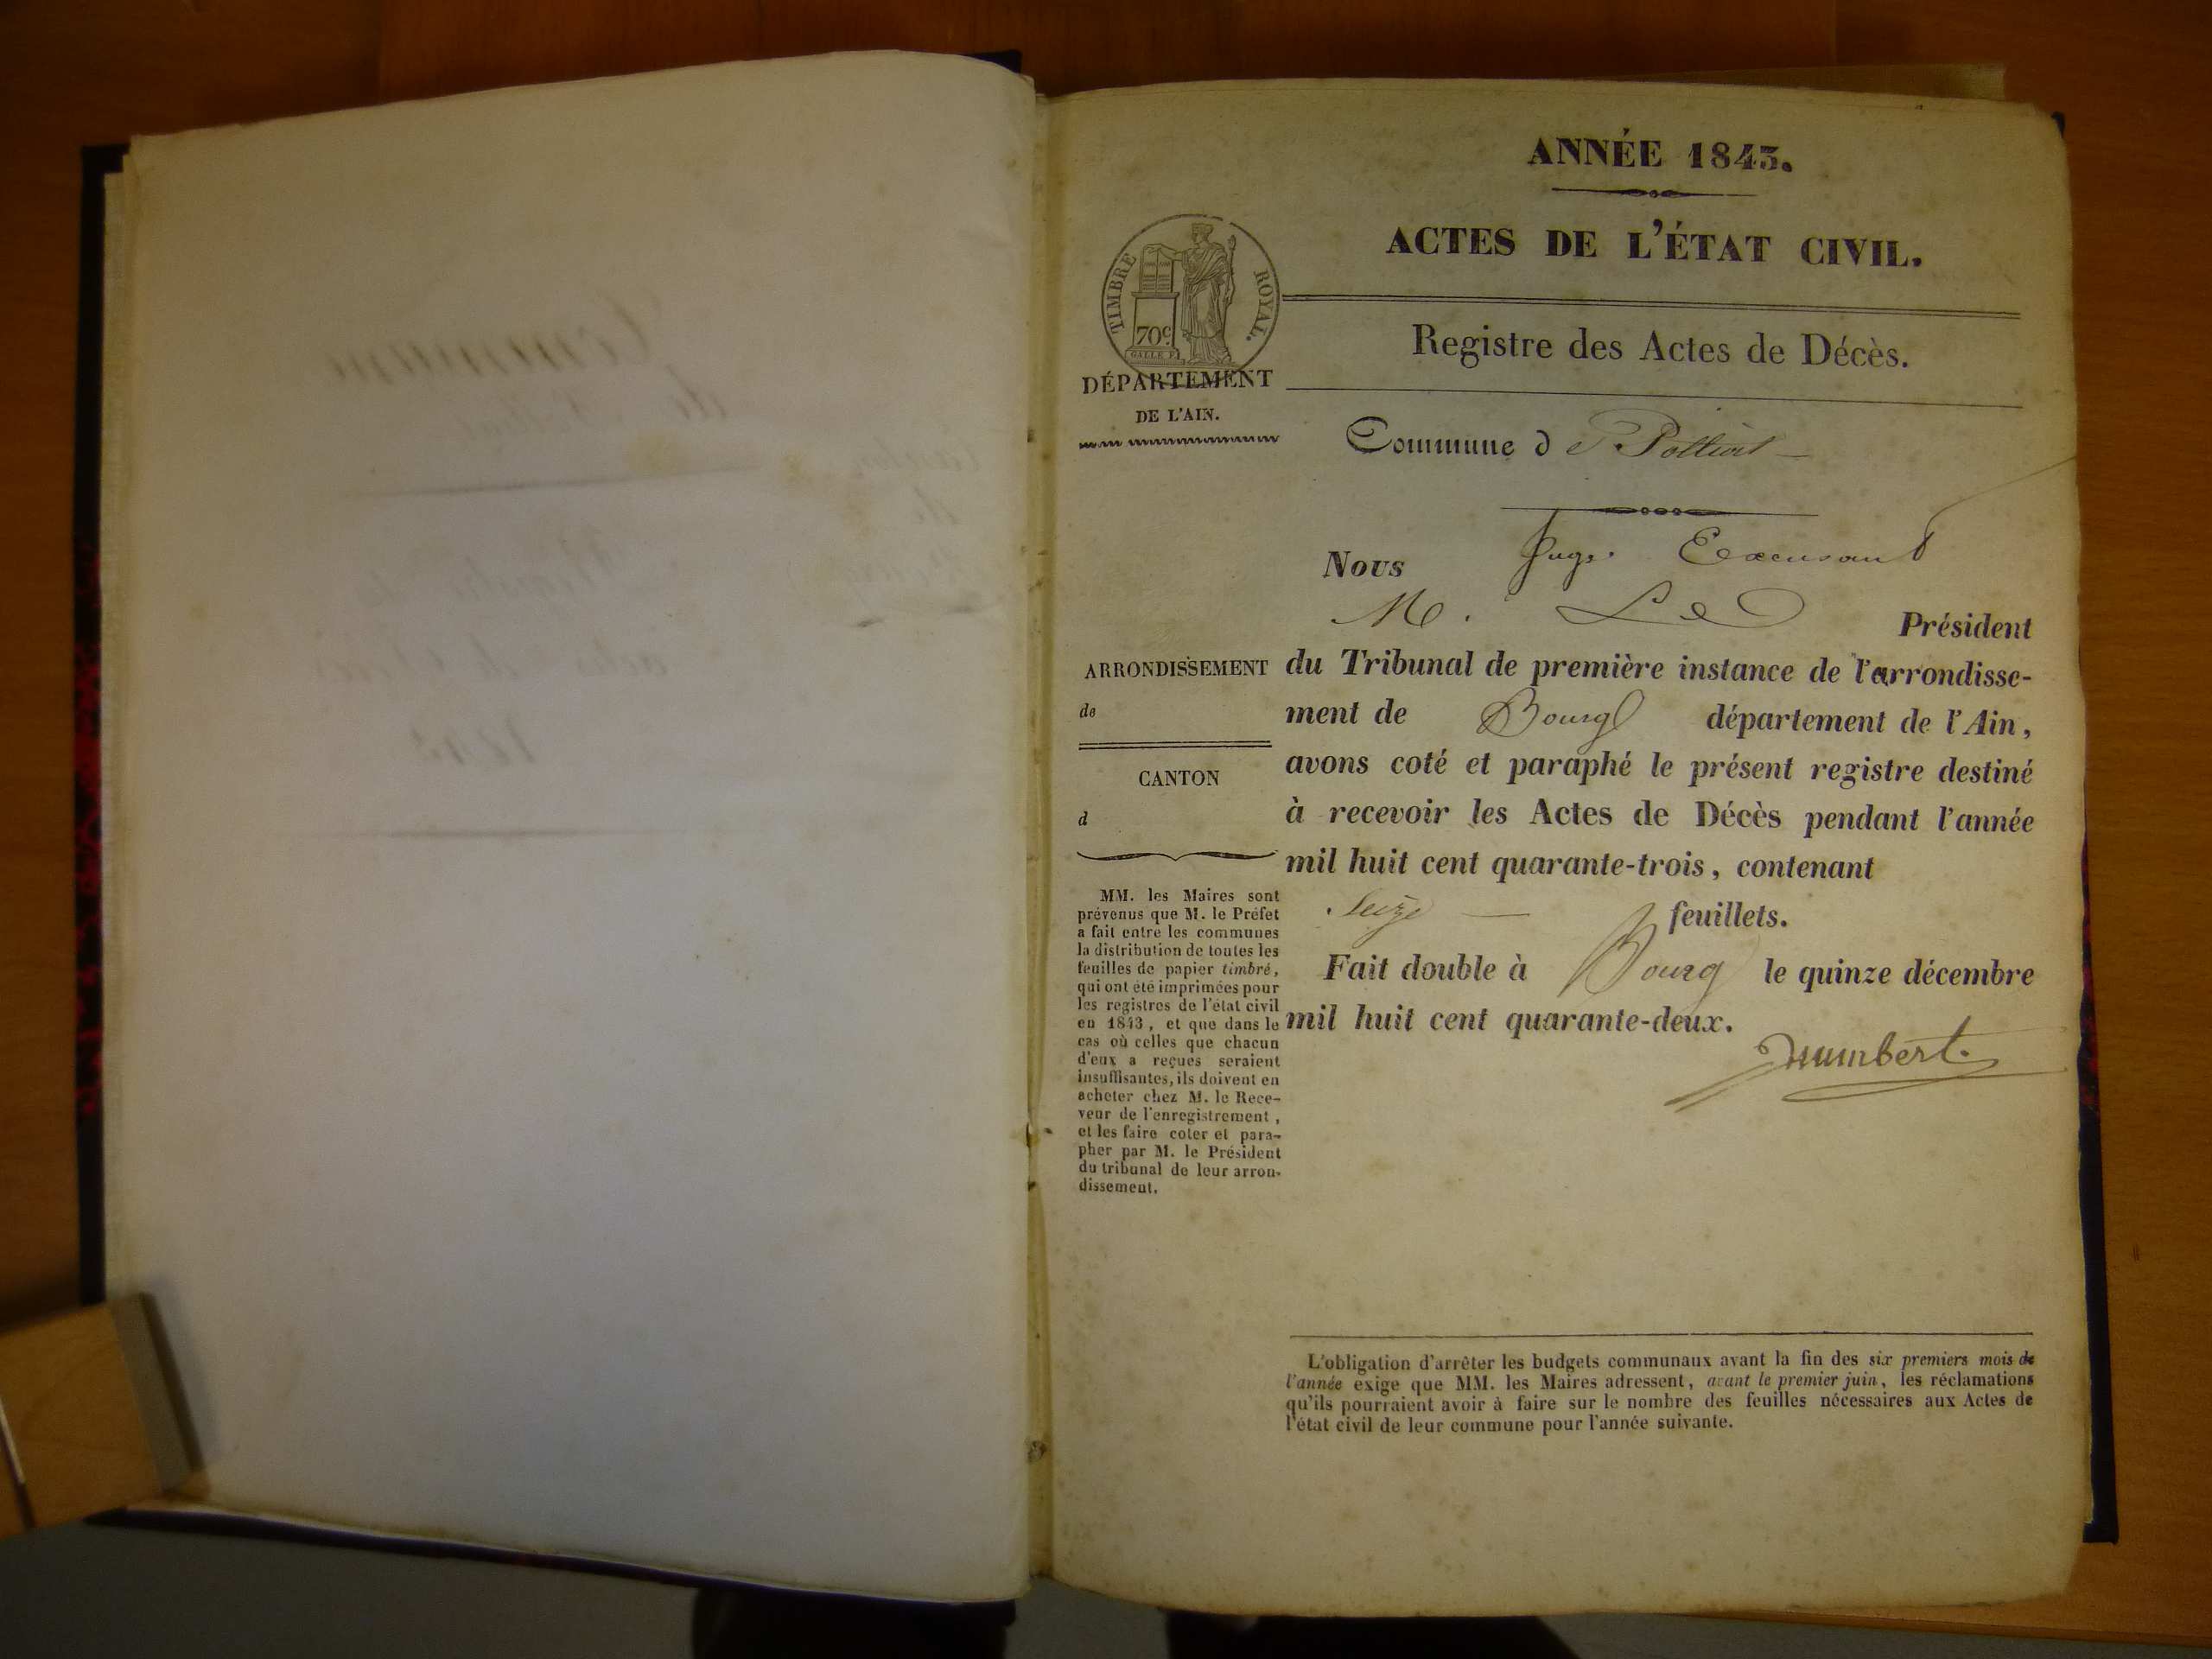 Commune
de
1843
ANNÉE 1843.
ACTES DE L'ÉTAT CIVIL.
TIMBRE ROYAL.
70c
GALLE F.
Registre des Actes de Décès.
DÉPARTEMENT
DE L'AIN.
Commune d e Polliat
Nous Juge Excusant
M. Le Président
ARRONDISSEMENT
de
CANTON
d
du Tribunal de première instance de l'arrondisse-
ment de Bourg département de l'Ain,
avons coté et paraphé le présent registre destiné
à recevoir les Actes de Décès pendant l'année
mil huit cent quarante-trois, contenant
Seize feuillets.
Fait double à Bourg le quinze décembre
mil huit cent quarante-deux.
Humbert.
MM. les Maires sont
prévenus que M. le Préfet
a fait entre les communes
la distribution de toutes les
feuilles de papier timbré,
qui ont été imprimées pour
les registres de l'état civil
en 1843, et que dans le
cas où celles que chacun
d'eux a reçues seraient
insuffisantes, ils doivent en
acheter chez M. le Rece-
veur de l'enregistrement,
et les faire coter et para-
pher par M. le Président
du tribunal de leur arron-
dissement.
L'obligation d'arrêter les budgets communaux avant la fin des six premiers mois de
l'année exige que MM. les Maires adressent, avant le premier juin, les réclamations
qu'ils pourraient avoir à faire sur le nombre des feuilles nécessaires aux Actes de
l'état civil de leur commune pour l'année suivante.